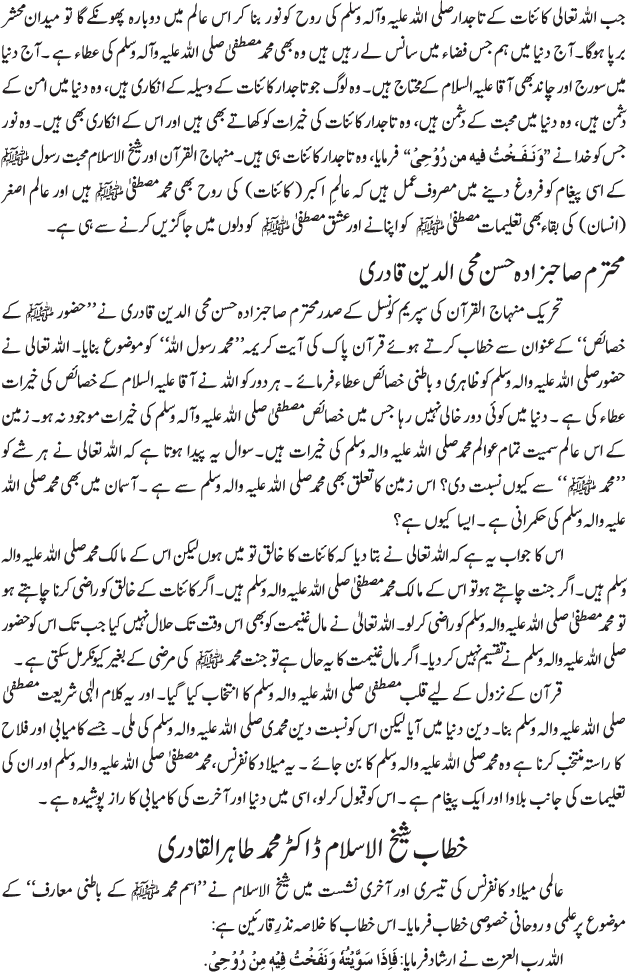 جب اللہ تعالی کائنات کے تاجدار صلی اللہ علیہ وآلہ وسلم کی روح کو نور بنا کر اس عالم میں دوبارہ پھونکے گا تو میدان محشر
برپا ہوگا۔ آج دنیا میں ہم جس فضاء میں سانس لے رہیں ہیں وہ بھی محمد مصطفیٰ صلی اللہ علیہ وآلہ وسلم کی عطاء ہے۔ آج دنیا
میں سورج اور چاند بھی آقا علیہ السلام کے محتاج ہیں۔ وہ لوگ جو تاجدار کائنات کے وسیلہ کے انکاری ہیں، وہ دنیا میں امن کے
دشمن ہیں، وہ دنیا میں محبت کے دشمن ہیں، وہ تاجدار کائنات کی خیرات کو کھاتے بھی ہیں اور اس کے انکاری بھی ہیں۔ وہ نور
جس کو خدا نے ”وَنَفَخْتُ فيه من رُوْحِیْ“ فرمایا، وہ تاجدار کائنات ہی ہیں۔ منہاج القرآن اور شیخ الاسلام محبت رسول ﷺ
کے اسی پیغام کو فروغ دینے میں مصروف عمل ہیں کہ عالمِ اکبر (کائنات) کی روح بھی محمد مصطفیٰ ﷺ ہیں اور عالم اصغر
(انسان) کی بقاء بھی تعلیمات مصطفیٰ ﷺ کو اپنانے اور عشق مصطفیٰ ﷺ کو دلوں میں جاگزیں کرنے سے ہی ہے۔
محترم صاحبزادہ حسن محی الدین قادری
تحریک منہاج القرآن کی سپریم کونسل کے صدر محترم صاحبزادہ حسن محی الدین قادری نے ’’حضور ﷺ کے
خصائص‘‘ کے عنوان سے خطاب کرتے ہوئے قرآن پاک کی آیت کریمہ ’’محمد رسول اللہ‘‘ کو موضوع بنایا۔ اللہ تعالی نے
حضور صلی اللہ علیہ والہ وسلم کو ظاہری و باطنی خصائص عطاء فرمائے ۔ ہر دور کو اللہ نے آقا علیہ السلام کے خصائص کی خیرات
عطاء کی ہے ۔ دنیا میں کوئی دور خالی نہیں رہا جس میں خصائص مصطفی صلی اللہ علیہ وآلہ وسلم کی خیرات موجود نہ ہو۔ زمین
کے اس عالم سمیت تمام عوالم محمد صلی اللہ علیہ والہ وسلم کی خیرات ہیں۔ سوال یہ پیدا ہوتا ہے کہ اللہ تعالی نے ہر شے کو
’’محمد ﷺ‘‘ سے کیوں نسبت دی؟ اس زمین کا تعلق بھی محمد صلی اللہ علیہ والہ وسلم سے ہے ۔ آسمان میں بھی محمد صلی اللہ
علیہ والہ وسلم کی حکمرانی ہے ۔ ایسا کیوں ہے؟
اس کا جواب یہ ہے کہ اللہ تعالی نے بتا دیا کہ کائنات کا خالق تو میں ہوں لیکن اس کے مالک محمد صلی اللہ علیہ والہ
وسلم ہیں۔ اگر جنت چاہتے ہو تو اس کے مالک محمد مصطفیٰ صلی اللہ علیہ والہ وسلم ہیں۔ اگر کائنات کے خالق کو راضی کرنا چاہتے ہو
تو محمد مصطفیٰ صلی اللہ علیہ والہ وسلم کو راضی کر لو۔ اللہ تعالیٰ نے مال غنیمت کو بھی اس وقت تک حلال نہیں کیا جب تک اس کو حضور
صلی اللہ علیہ والہ وسلم نے تقسیم نہیں کر دیا۔ اگر مال غنیمت کا یہ حال ہے تو جنت محمد ﷺ کی مرضی کے بغیر کیونکر مل سکتی ہے ۔
قرآن کے نزول کے لیے قلب مصطفیٰ صلی اللہ علیہ والہ وسلم کا انتخاب کیا گیا۔ اور یہ کلام الٰہی شریعت مصطفیٰ
صلی اللہ علیہ والہ وسلم بنا۔ دین دنیا میں آیا لیکن اس کو نسبت دین محمدی صلی اللہ علیہ والہ وسلم کی ملی۔ جسے کامیابی اور فلاح
کا راستہ منتخب کرنا ہے وہ محمد صلی اللہ علیہ والہ وسلم کا بن جائے ۔ یہ میلاد کانفرنس، محمد مصطفیٰ صلی اللہ علیہ والہ وسلم اور ان کی
تعلیمات کی جانب بلاوا اور ایک پیغام ہے ۔ اس کو قبول کر لو، اسی میں دنیا اور آخرت کی کامیابی کا راز پوشیدہ ہے ۔
خطاب شیخ الاسلام ڈاکٹر محمد طاہر القادری
عالمی میلاد کانفرنس کی تیسری اور آخری نشست میں شیخ الاسلام نے ’’اسم محمد ﷺ کے باطنی معارف‘‘ کے
موضوع پر علمی و روحانی خصوصی خطاب فرمایا۔ اس خطاب کا خلاصہ نذرِ قارئین ہے:
اللہ رب العزت نے ارشاد فرمایا: فَاِذَا سَوَّيْتُهٗ وَنَفَخْتُ فِيْهِ مِنْ رُوْحِیْ.